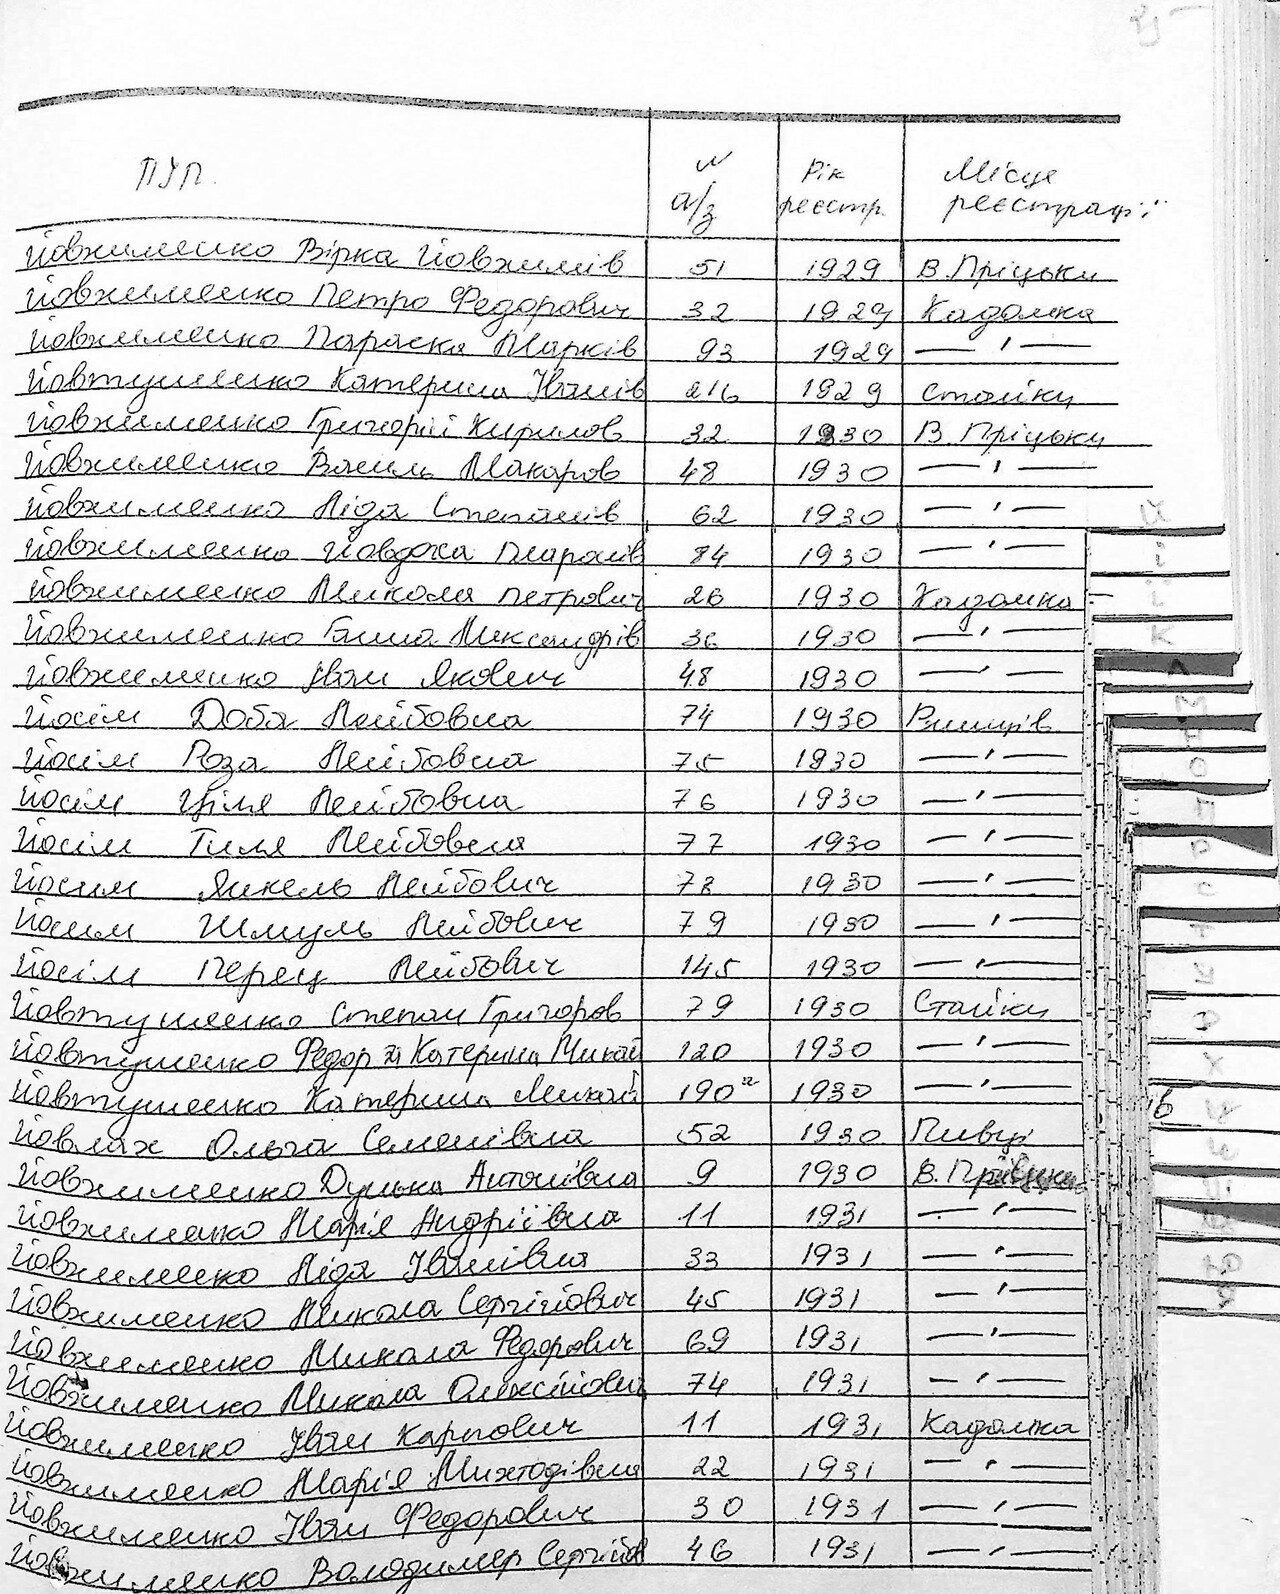 П.І.П. № а/з Рік реєстр. Місце реєстрації
Йовхименко Вірка Йовхимів 51 1929 В.Пріцьки
Йовхименко Петро Федорович 32 1929 Кадомка
Йовхименко Параска Марків 93 1929 — " —
Йовтушенко Катерина Іванів 216 1929 Стайки
Йовхименко Григорій Кирилов 32 1930 В. Пріцьки
Йовхименко Василь Макаров 48 1930 — " —
Йовхименко Ліда Степанів 62 1930 — " —
Йовхименко Йовдоха 84 1930 — " —
Йовхименко Микола Петрович 26 1930 Кадомка
Йовхименко Ганна Олександрів 36 1930 — " —
Йовхименко Іван Якович 48 1930 — " —
Йосім Доба Лейбовна 74 1930 Ржищів
Йосім Роза Лейбовна 75 1930 — " —
Йосім Ціля Лейбовна 76 1930 — " —
Йосім Гиля Лейбовна 77 1930 — " —
Йосим Янкель Лейбович 78 1930 — " —
Йосим Шмуль Лейбович 79 1930 — " —
Йосім Перец Лейбович 145 1930 — " —
Йовтушенко Степан Григоров 79 1930 Стайки
Йовтушенко Федор та Катерина Микол 120 1930 — " —
Йовтушенко Катерина Микол 190 1930 — " —
Йовлах Ольга Семенівна 52 1930 Пивці
Йовхименко Дунька Антонівна 9 1930 В. Пріцьки
Йовхименко Марія Андріївна 11 1931 — " —
Йовхименко Ліда Іванівна 33 1931 — " —
Йовхименко Микола Сергійович 45 1931 — " —
Йовхименко Микола Федорович 69 1931 — " —
Йовхименко Микола Олексійович 74 1931 — " —
Йовхименко Іван Карпович 11 1931 Кадомка
Йовхименко Марія Михтодівна 22 1931 — " —
Йовхименко Іван Федорович 30 1931 — " —
Йовхименко Володимер Сергійов 46 1931 — " —